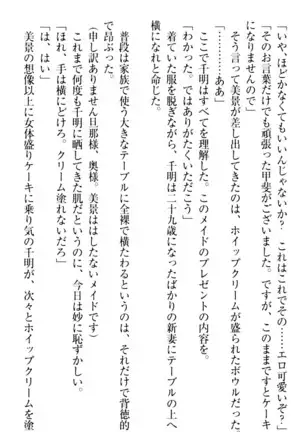 「いや、ほどかなくていいんじゃないか？　これはこれでその……エロ可愛いぞ？」
「そのお言葉だけでも頑張った甲斐がございました。ですが、このままですとケーキ
になりませんので」
　そう言って美景が差し出してきたのは、ホイップクリームが盛られたボウルだった。
「…………ああ」
　ここで千明はすべてを理解した。このメイドのプレゼントの内容を。
「わかった。ではありがたくいただこう」
　着ていた服を脱ぎながら、千明は二十九歳になったばかりの新妻にテーブルの上へ
横になれと命じた。
　普段は家族で使う大きなテーブルに全裸で横たわるというのは、それだけで背徳的
で昂ぶった。
（申し訳ありません旦那様、奥様。美景ははしたないメイドです）
　これまで何度も千明に晒してきた肌だというのに、今日は妙に恥ずかしい。
「ほれ、手は横にどけろ。クリーム塗れないだろ」
「は、はい」
　美景の想像以上に女体盛りケーキに乗り気の千明が、次々とホイップクリームを塗